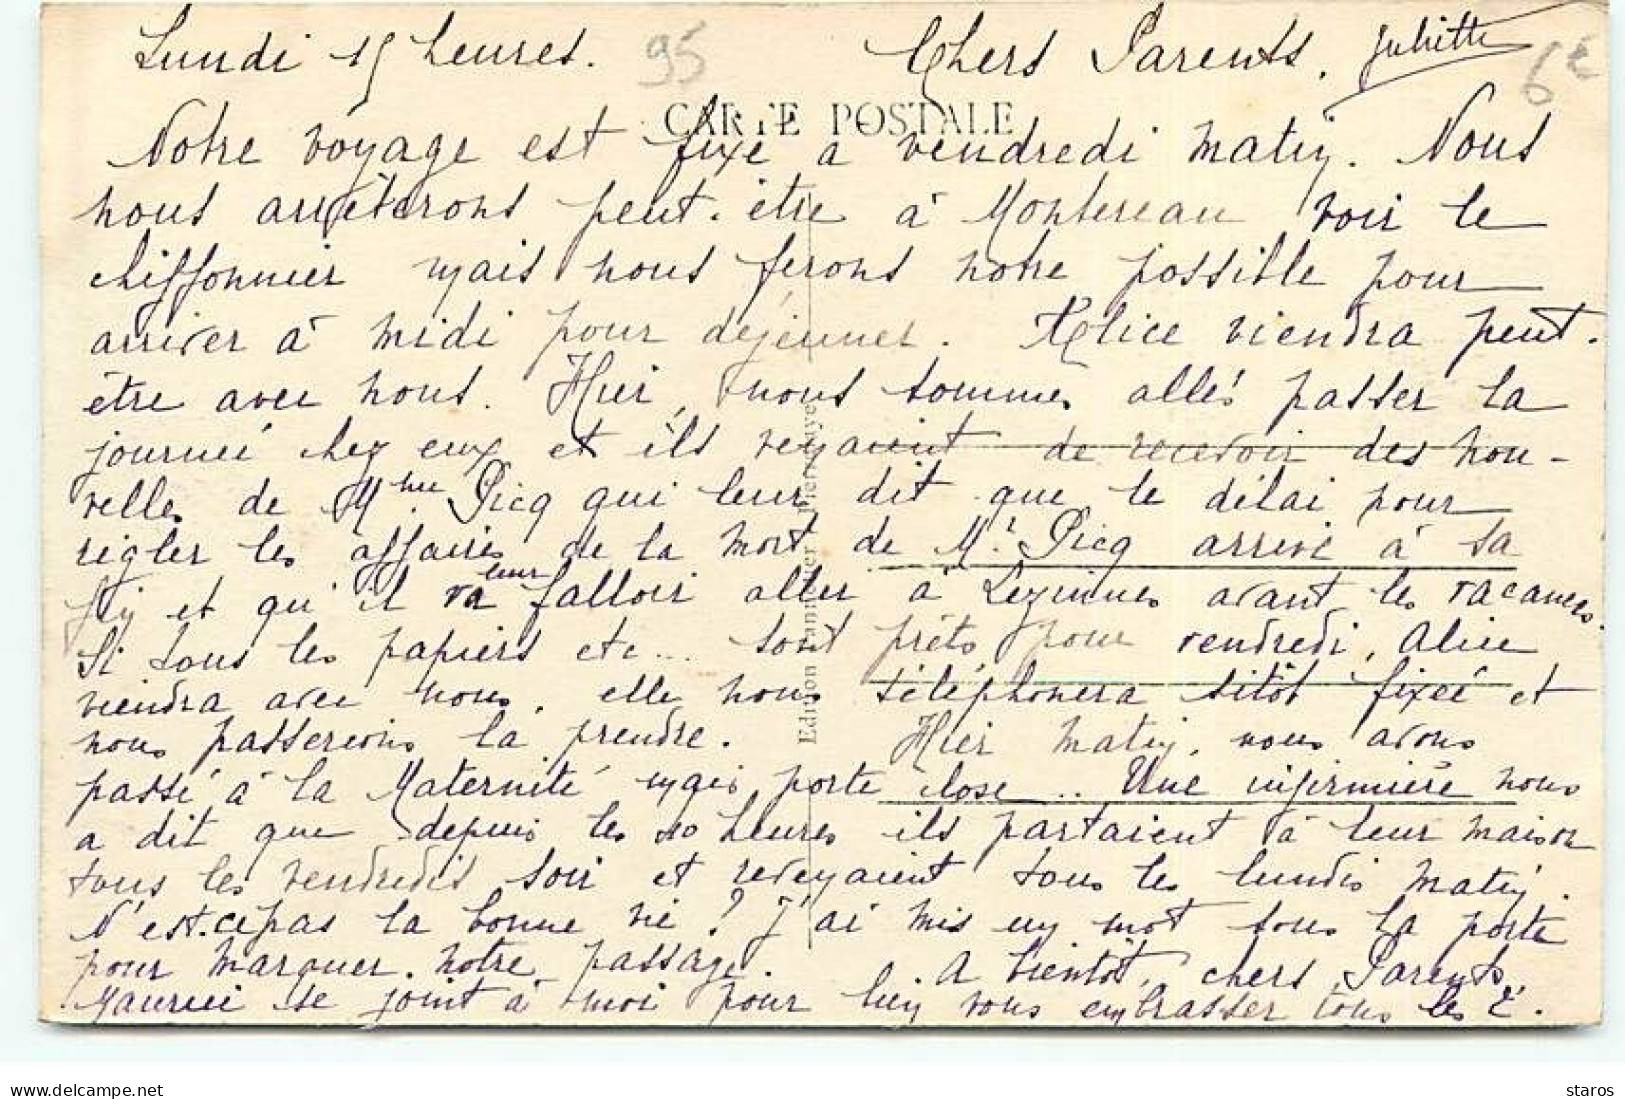 Lundi 15 heures. 95 Chers Parents, Juliette 6€
CARTE POSTALE
Notre voyage est fixé à vendredi matin. Nous
nous arrêterons peut-être à Montereau voir le
chiffonnier mais nous ferons notre possible pour
arriver à midi pour déjeuner. Alice viendra peut-
être avec nous. Hier, nous sommes allés passer la
journée chez eux et ils venaient de recevoir des nou-
velles de Mme Picq qui leur dit que le délai pour
régler les affaires de la mort de Mr Picq arrive à sa
fin et qu'il va leur falloir aller à Lezinnes avant les vacances.
Si tous les papiers etc... sont prêts pour vendredi, Alice
viendra avec nous, elle nous téléphonera sitôt fixée et
nous passerions la prendre. Hier matin, nous avons
passé à la Maternité mais porte close... Une infirmière nous
a dit que depuis les 10 heures ils partaient à leur maison
tous les vendredis soir et revenaient tous les lundis matin.
N'est-ce pas la bonne vie ? J'ai mis un mot sous la porte
pour marquer notre passage. A bientôt, chers Parents,
Maurice se joint à moi pour bien vous embrasser tous les 2.
Edition
delcampe.net
staros